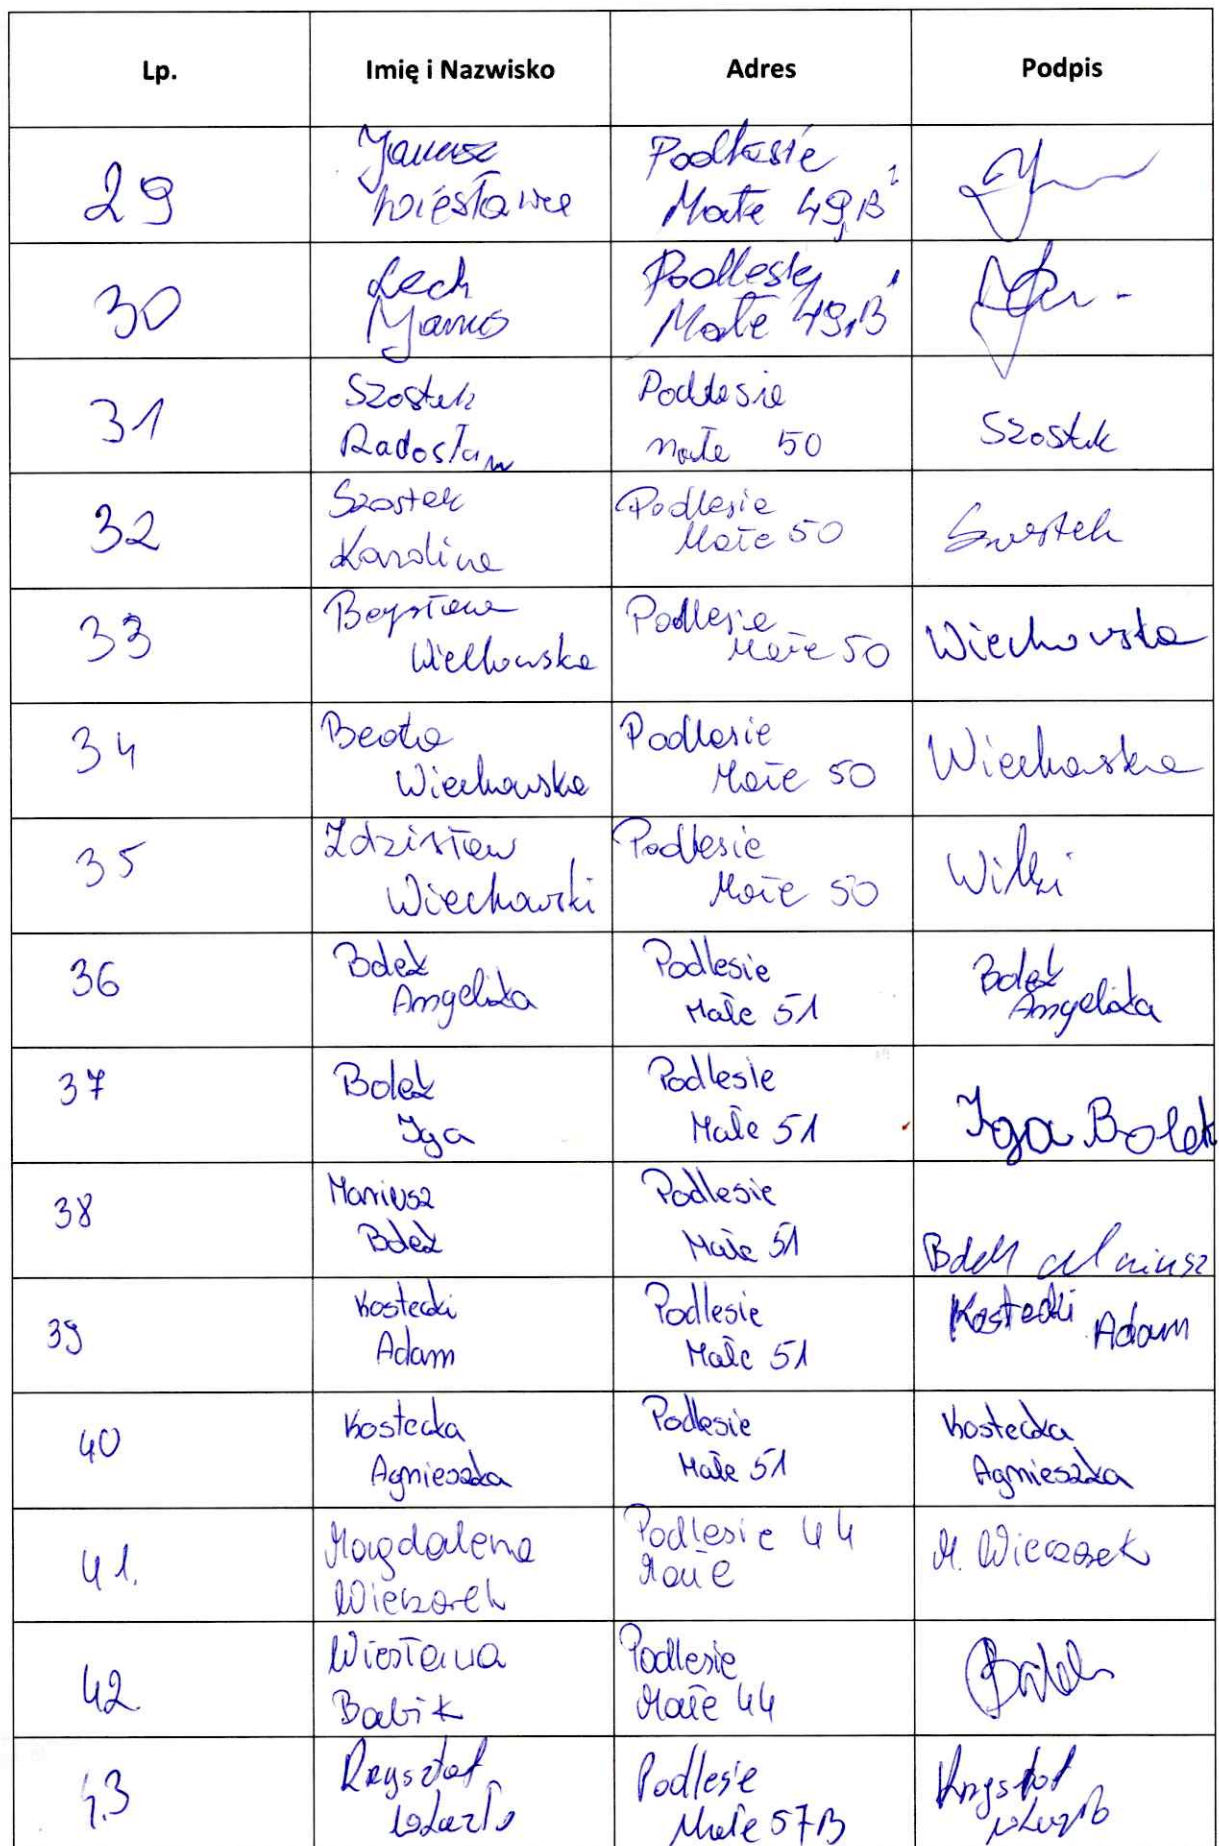 Lp. Imię i Nazwisko Adres Podpis
29
Janusz
Wiesława
Podlesie
Małe 49,B
30
Lech
Janus
Podlesie
Małe 49,B
31
Szostek
Radosław
Podlesie
Małe 50
Szostek
32
Szostek
Karolina
Podlesie
Małe 50
Szostek
33
Wiechowska
Podlesie
Małe 50
Wiechowska
34
Beata
Wiechowska
Podlesie
Małe 50
Wiechowska
35
Zdzisław
Wiechowski
Podlesie
Małe 50
36
Bolek
Angelika
Podlesie
Małe 51
Bolek
Angelika
37
Bolek
Iga
Podlesie
Małe 51
Iga Bolek
38
Mariusz
Bolek
Podlesie
Małe 51
Bolek Mariusz
39
Kostecki
Adam
Podlesie
Małe 51
Kostecki Adam
40
Kostecka
Agnieszka
Podlesie
Małe 51
Kostecka
Agnieszka
41.
Magdalena
Wieczorek
Podlesie 44
Małe
M. Wieczorek
42.
Wiesława
Babik
Podlesie
Małe 44
43
Krzysztof
Podlesie
Małe 57B
Krzysztof